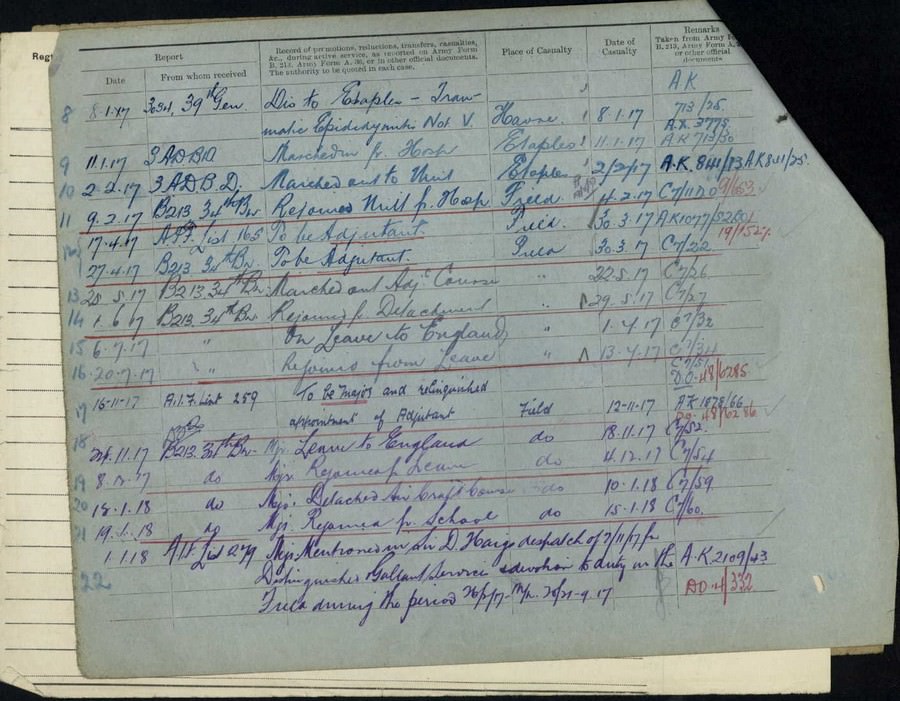 Regt
Report
Record of promotions, reductions, transfers, casualties, &c., during active service, as reported on Army Form B. 213, Army Form A. 36, or in other official documents. The authority to be quoted in each case.
Place of Casualty
Date of Casualty
Remarks
Taken from Army Form B. 213, Army Form A. 36, or other official documents.
Date From whom received
A.K
8 8.1.17 39th Gen. Dis to Etaples - Trau-
matic Epididymitis Not V. Havre. 8.1.17 713/25.
A.K. 3775
9 11.1.17 3 ADBD Marched in fr. Hosp Etaples 11.1.17 AK 713/30
10 2.2.17 3 A.D.B.D. Marched out to Unit Etaples 2/2/17 A.K. 841/13 A.K 841/25.
11 9.2.17 B213 34th Bn. Rejoined Unit fr. Hosp Field. 4.2.17
17.4.17 A.I.F. List 165 To be Adjutant. Field. 30.3.17 AK1077/
27.4.17 B213 34th Bn. To be Adjutant. Field 30.3.17 C7/22
13 25.5.17 B213 34th Bn. Marched out Adj. Course " 22.5.17 C7/26
14 1.6.17 B213. 34th Bn. Rejoined fr. Detachment " 29.5.17 C7/27
15 6.7.17 " On Leave to England " 1.7.17 C7/32
16 20.7.17 " Rejoined from Leave " 13.7.17 C7/34
C7/51
D.O. 48/6285
17 16-11-17 A.I.F. List 259 To be Major and relinquished
appointment of Adjutant Field 12-11-17 AK 1878/66
DO. 48/6286
18 24.11.17 B213. 34th Bn. Mjr. Leave to England do 18.11.17 C7/52.
19 8.12.17 do Mjr. Rejoined fr. Leave do 4.12.17 C7/54
20 18.1.18 do Mjr. Detached Air Craft Course do 10.1.18 C7/59
21 19.1.18 do Mjr. Rejoined fr. School do 15.1.18 C7/60.
1.1.18 A.I.F. List 279 Mjr. Mentioned in Sir D. Haigs despatch of 7/11/17 for
22 Distinguished & Gallant Services & devotion to duty in the A.K 2109/43
Field during the period 26/2/17 20/21-9.17 DO 4/332